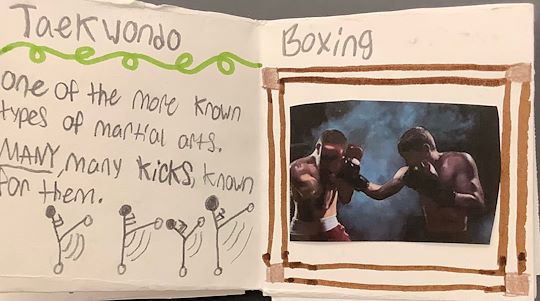 Taekwondo
one of the more known
types of martial arts.
MANY, many kicks, known
for them.
Boxing